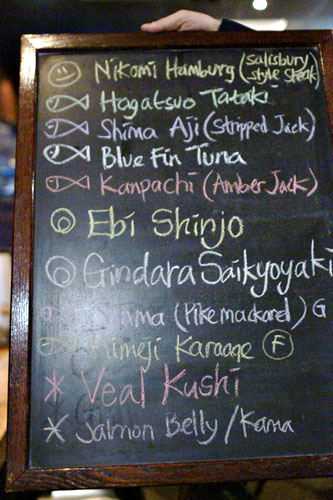 Nikomi Hamburg (Salisbury style steak)
Hagatsuo Tataki
Shima Aji (Stripped Jack)
Blue Fin Tuna
Kanpachi (Amber Jack)
Ebi Shinjo
Gindara Saikyoyaki
(Pike mackarel) G
Himeji Karaage F
Veal Kushi
Salmon Belly / Kama